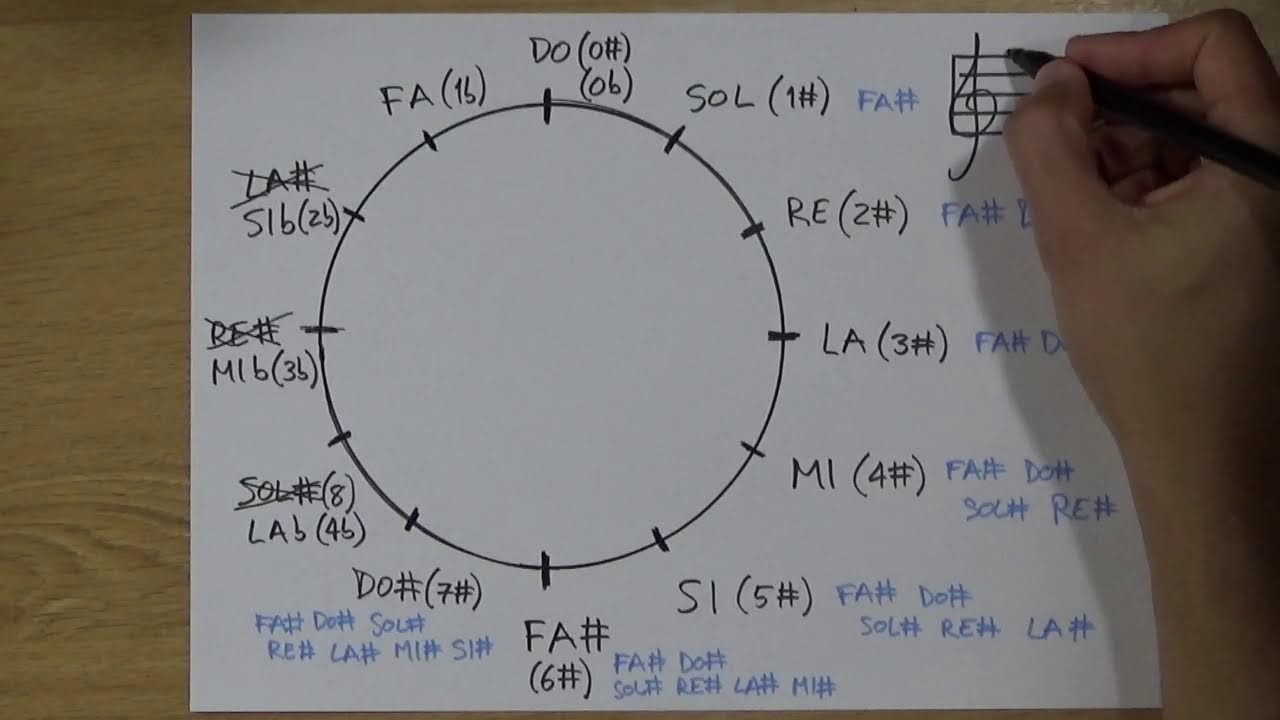 DO (0#)
(0b)
SOL (1#) FA#
RE (2#) FA#
LA (3#) FA#
MI (4#) FA# DO#
SOL# RE#
SI (5#) FA# DO#
SOL# RE# LA#
FA#
(6#) FA# DO#
SOL# RE# LA# MI#
DO# (7#)
FA# DO# SOL#
RE# LA# MI# SI#
SOL# (8)
LAb (4b)
RE#
MIb (3b)
LA#
SIb (2b)
FA (1b)